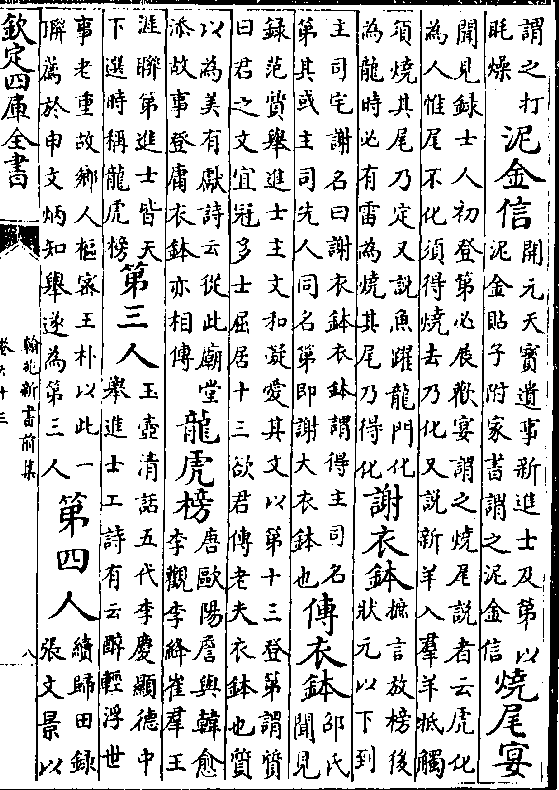 謂之打
毷燥
泥金信
開元天寳遺事新進士及第以
泥金貼子附家書謂之泥金信
燒尾宴
聞見録士人初登第必展歡宴謂之燒尾説者云虎化
為人惟尾不化須得燒去乃化又説新羊入羣羊牴觸
須燒其尾乃定又説魚躍龍門化
為龍時必有雷為燒其尾乃得化
謝衣鉢
摭言放榜後
狀元以下到
主司宅謝名曰謝衣鉢衣鉢謂得主司名
第其或主司先人同名第即謝大衣鉢也
傳衣鉢
邵氏
聞見
録范質舉進士主文和凝愛其文以第十三登第謂質
曰君之文宜冠多士屈居十三欲君傳老夫衣鉢也質
以為美有獻詩云從此廟堂
添故事登庸衣鉢亦相傳
龍虎榜
唐歐陽詹與韓愈
李觀李絳崔羣王
涯聯第進士皆天
下選時稱龍虎榜
第三人
玉壺清話五代李慶顯德中
舉進士工詩有云醉輕浮世
事老重故鄉人樞密王朴以此一
聨薦於申文炳知舉遂為第三人
第四人
續歸田録
張文景以
欽定四庫全書
翰苑新書前集
卷六十三
八